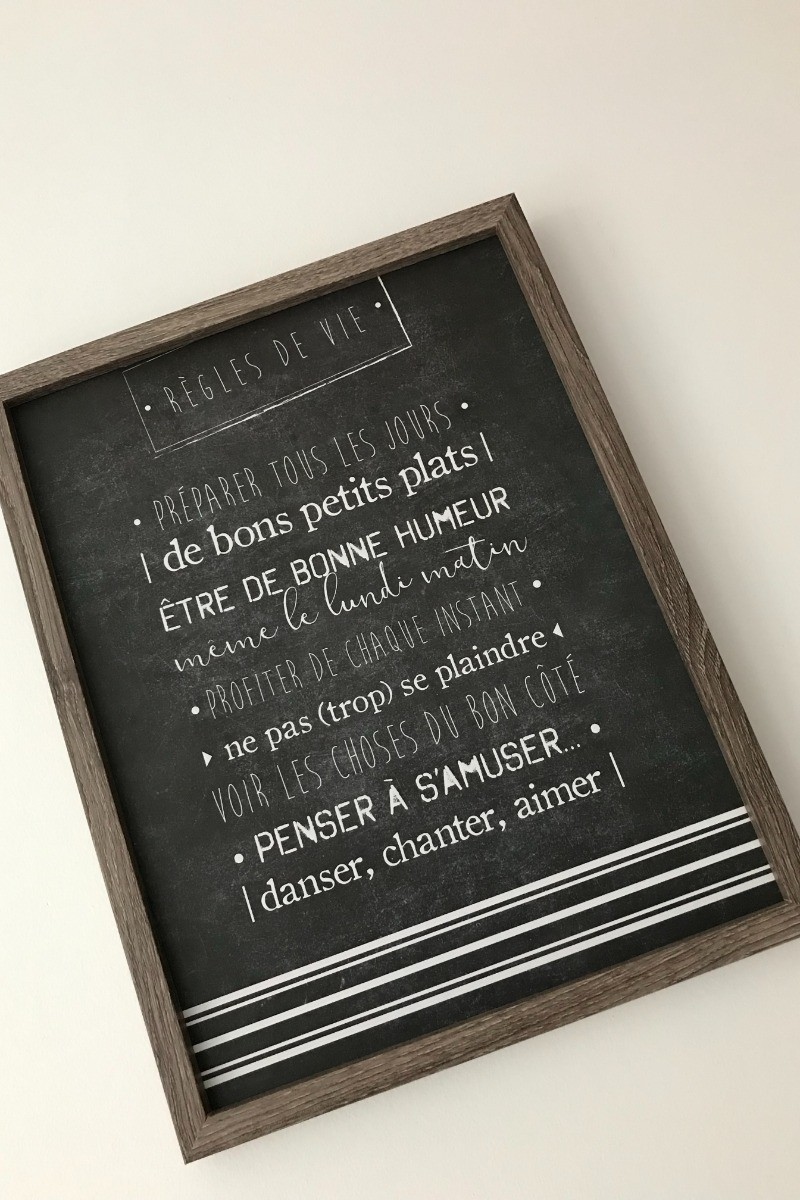 • RÈGLES DE VIE •
• PRÉPARER TOUS LES JOURS •
| de bons petits plats |
ÊTRE DE BONNE HUMEUR
même le lundi matin
• PROFITER DE CHAQUE INSTANT •
▸ ne pas (trop) se plaindre ◂
VOIR LES CHOSES DU BON CÔTÉ
• PENSER À S'AMUSER... •
| danser, chanter, aimer |